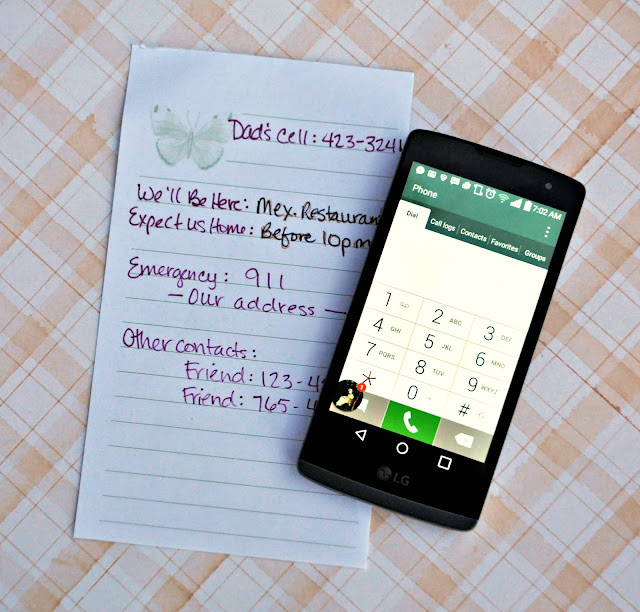 Dad's Cell: 423-3241
We'll Be Here: Mex. Restaurant
Expect us Home: Before 10pm
Emergency: 911
- Our address -
Other contacts:
Friend: 123-4
Friend: 765-4
7:02 AM
Phone
Dial Call logs Contacts Favorites Groups
1 2 ABC 3 DEF
4 GHI 5 JKL 6 MNO
7 PQRS 8 TUV 9 WXYZ
* 0 + #
LG